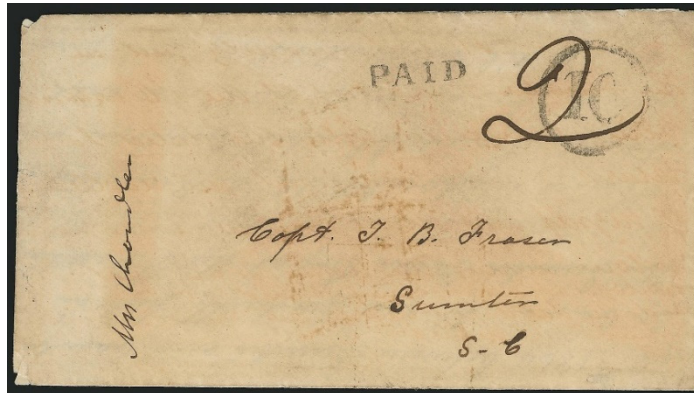 PAID
2
10
Capt. T. B. Fraser
Sumter
S-C
Mrs Chandler